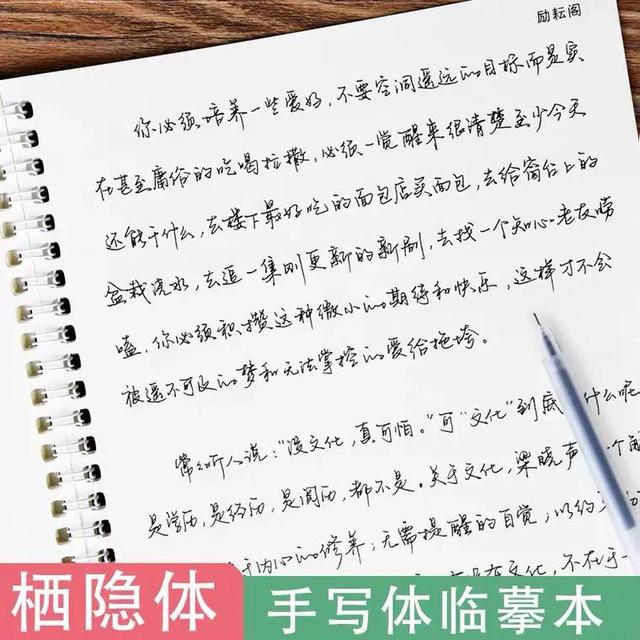 励耘阁
你必须培养一些爱好,不要空洞遥远的目标而是实
在甚至庸俗的吃喝拉撒,必须一觉醒来很清楚至少今天
还能干什么,去楼下最好吃的面包店买面包,去给窗台上的
盆栽浇水,去追一集刚更新的新剧,去找一个知心老友唠
嗑,你必须积攒这种微小的期待和快乐,这样才不会
被遥不可及的梦和无法掌控的爱给拖垮。
常听人说:“没文化,真可怕。”可“文化”到底 什么呢
是学历,是经历,是阅历,都不是。关于文化,梁晓声 一个
于内心的修养;无需提醒的自觉;以约
没有文化,不在于
栖隐体
手写体临摹本